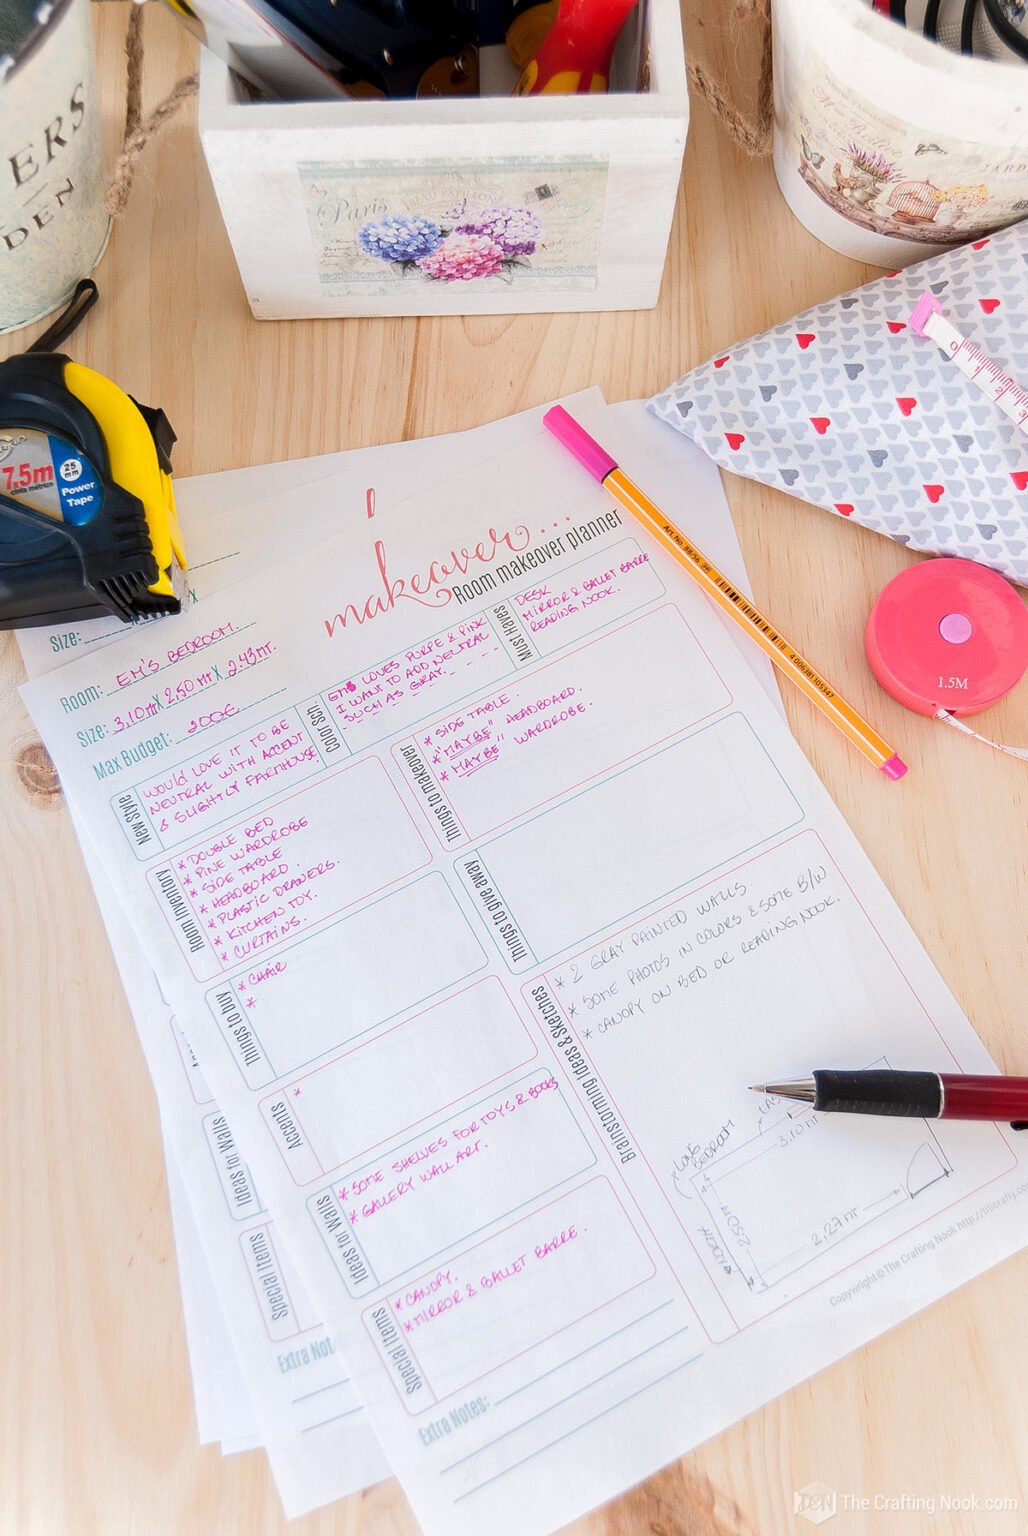 ERS
DEN
Paris
7.5m
cinta métrica
25
mm
Power
Tape
0 1 2 3
1.5M
Art. No. 88/56
4 006381 105347
I
makeover...
Room makeover planner
Size:
X
Room: EM'S BEDROOM.
Size: 3,10 MT X 2,50 MT X 2.43 MT.
Max Budget: 200€
New Style
WOULD LOVE IT TO BE
NEUTRAL WITH ACCENT
& SLIGHTLY FARMHOUSE.
Color Sch.
EMS LOVES PURPE & PINK
I WANT TO ADD NEUTRAL
SUCH AS GRAY.
Must Haves
DESK
MIRROR & BALLET BARRE
READING NOOK.
Room Inventory
* DOUBLE BED
* PINE WARDROBE
* SIDE TABLE
* HEADBOARD.
* PLASTIC DRAWERS.
* KITCHEN TOY.
* CURTAINS.
Things to makeover
* SIDE TABLE.
* "MAYBE" HEADBOARD.
* MAYBE" WARDROBE.
Things to buy
* CHAIR
*
Things to give away
Accents
*
Ideas for Walls
* SOME SHELVES FOR TOYS & BOOKS
* GALLERY WALL ART.
Special Items
* CANOPY.
* MIRROR & BALLET BARRE.
Extra Notes:
Brainstorming Ideas & Sketches
* 2 GRAY PAINTED WALLS
* SOME PHOTOS IN COLORS & SOME B/W
* CANOPY ON BED OR READING NOOK.
BEDROOM
3.10 MT
2.50 M
2,27 MT
Copyright © The Crafting Nook http://titicrafty.com
Ideas for Walls
Special Items
Extra Not
The Crafting Nook.com